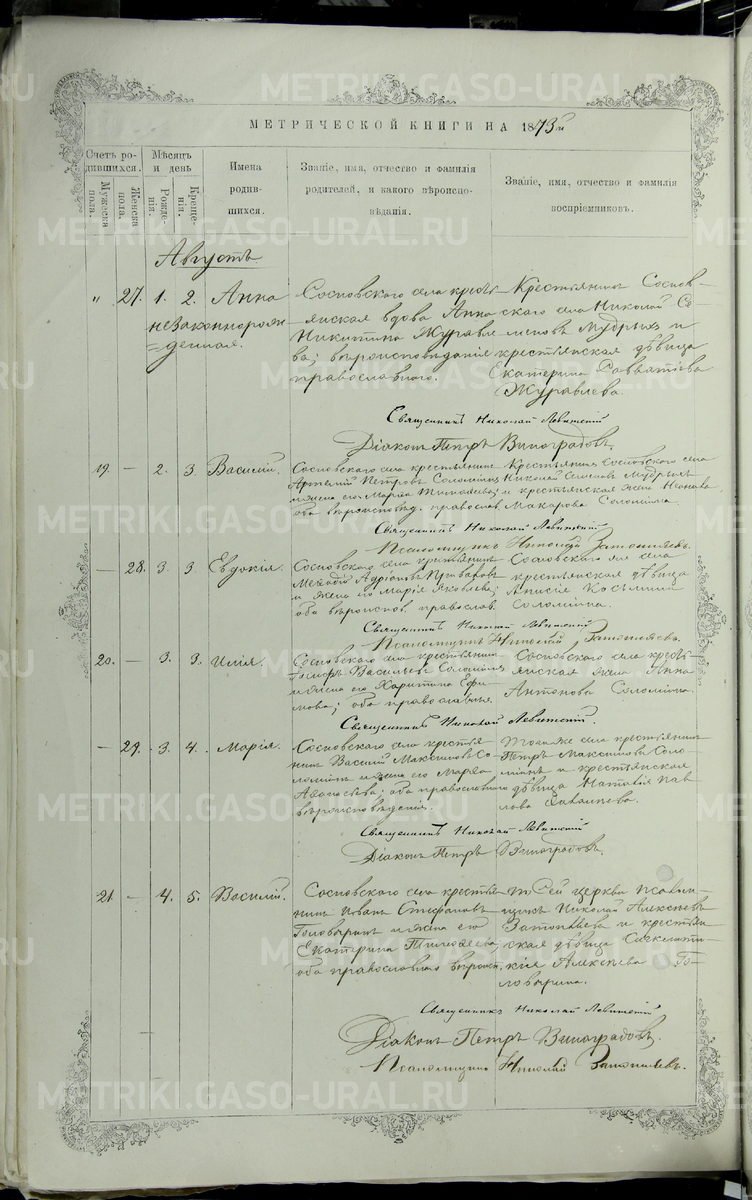 METRIKI.GASO-URAL.RU
МЕТРИЧЕСКОЙ КНИГИ НА 1873 й
Счетъ ро-
дившихся.
Мужеска
пола.
Женска
пола.
Мѣсяцъ
и день
Рожде-
нія.
Креще-
нія.
Имена
родив-
шихся.
Званіе, имя, отчество и фамилія
родителей, и какого вѣроиспо-
вѣданія.
Званіе, имя, отчество и фамилія
воспріемниковъ.
Августъ
" 27. 1. 2. Анна
незаконнорож-
денная.
Сосновскаго села кресть-
янская вдова Анна
Никитина Журавле-
ва; вѣроисповѣданія
православнаго.
Крестьянинъ Соснов-
скаго села Николай Се-
меновъ Мудрыхъ и
крестьянская дѣвица
Екатерина Савватѣева
Журавлева.
Священникъ Николай Левитскій
Діаконъ Петръ Виноградовъ.
19. — 2. 3. Василій.
Сосновскаго села крестьянинъ
Артемій Петровъ Соломинъ
и жена его Марѳа Тимоѳеева;
оба вѣроисповѣд. православ.
Крестьянинъ Сосновскаго села
Николай Семеновъ Мудрыхъ
и крестьянская жена
Макарова Соломина.
Священникъ Николай Левитскій
Псаломщикъ Николай Затопляевъ.
— 28. 3. 3. Евдокія.
Сосновскаго села крестьянинъ
Меѳодій Адріановъ
и жена его Марія Яковлева;
оба вѣроиспов. православ.
Сосновскаго же села
крестьянская дѣвица
Анисія Козьмина
Соломина.
Священникъ Николай Левитскій
Псаломщикъ Николай Затопляевъ.
20. — 3. 3. Илія.
Сосновскаго села крестьянинъ
Васильевъ Соломинъ
и жена его Харитина Ефи-
мова; оба православные
Сосновскаго села кресть-
янская жена Анна
Антонова Соломина.
Священникъ Николай Левитскій.
— 29. 3. 4. Марія.
Сосновскаго села крестья-
нинъ Василій Максимовъ Со-
ломинъ и жена его Марѳа
оба православнаго
вѣроисповѣданія.
Того же села крестьянинъ
Петръ Максимовъ Соло-
минъ и крестьянская
дѣвица Наталія Пав-
лова
Священникъ Николай Левитскій
Діаконъ Петръ Виноградовъ.
21 — 4. 5. Василій.
Сосновскаго села крестья-
нинъ Иванъ Стефановъ
Головыринъ и жена его
Екатерина Тимоѳеева,
оба православнаго вѣроисп.
Сей церкви псалом-
щикъ Николай Алексѣевъ
Затопляевъ и крестьян-
ская дѣвица Синклити-
кія Алексѣева Го-
ловырина.
Священникъ Николай Левитскій
Діаконъ Петръ Виноградовъ.
Псаломщикъ Николай Затопляевъ.